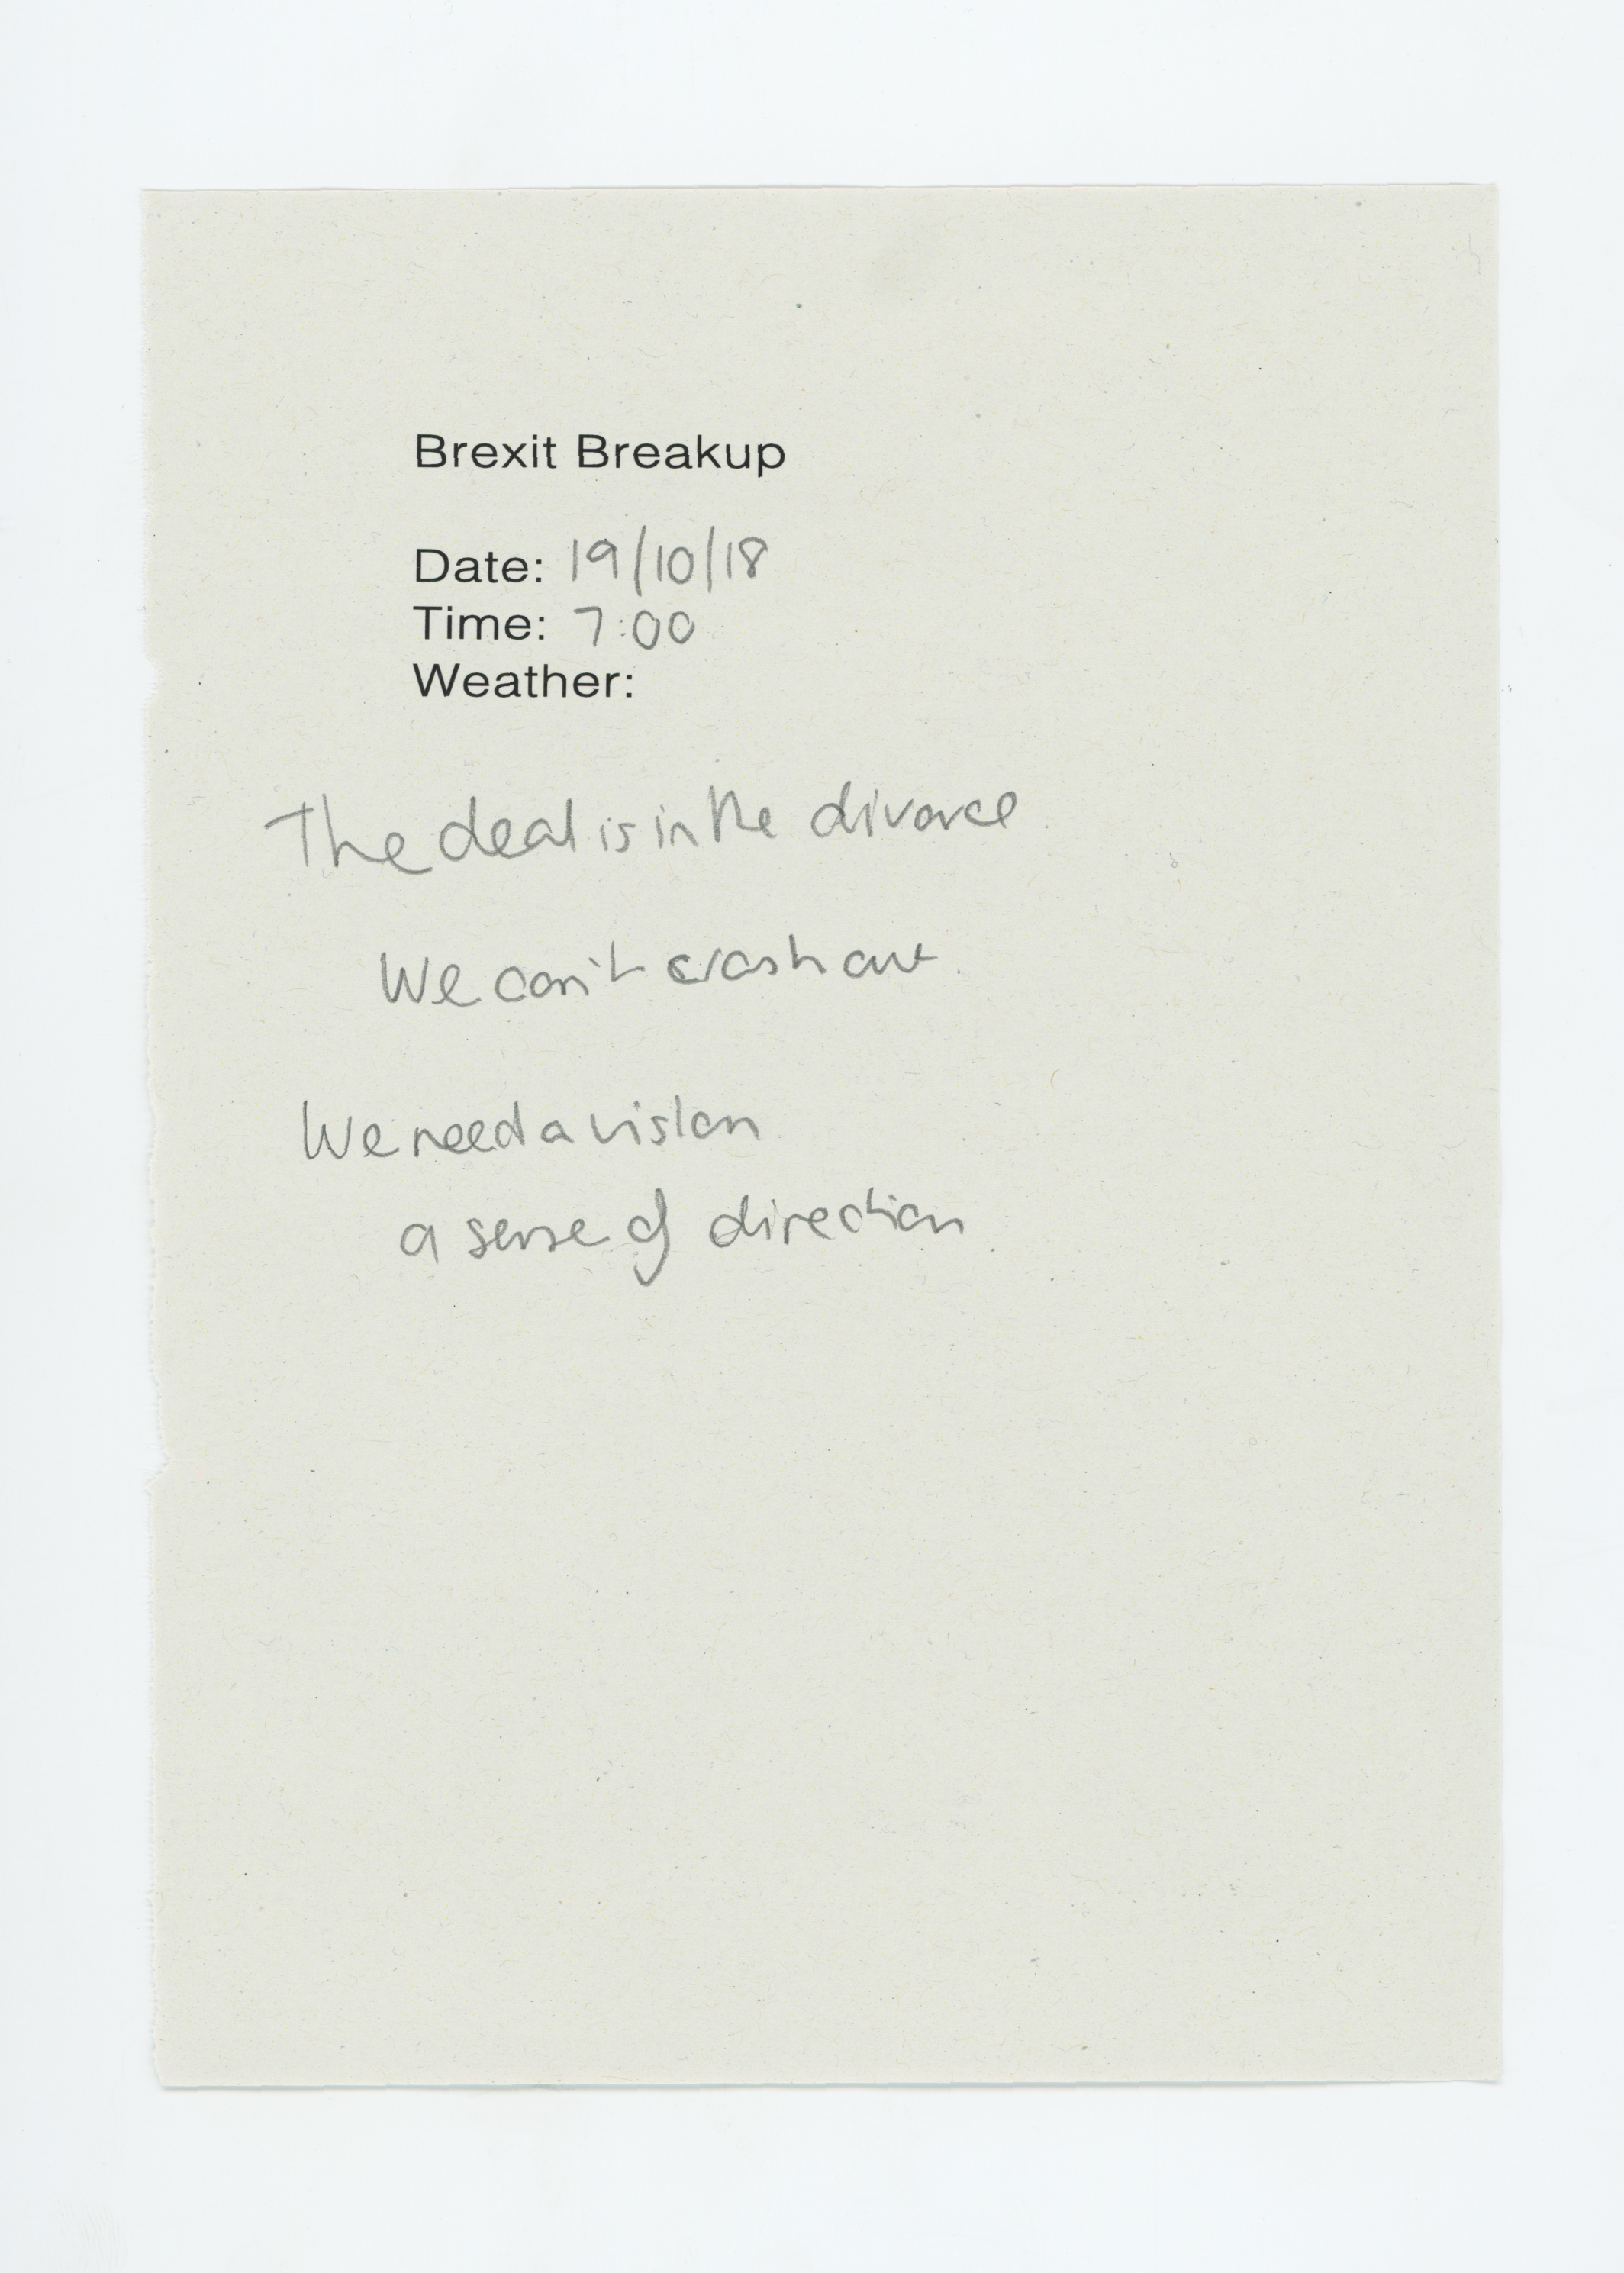 Brexit Breakup
Date: 19/10/18
Time: 7:00
Weather:
The deal is in the divorce
We can't crash out.
We need a vision
a sense of direction.